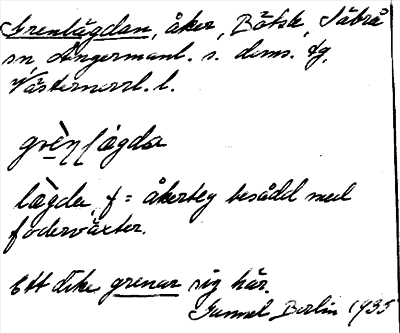 Grenlägdan, åker, Bäfsk, Säbrå
sn, Ångermanl. s. doms. fg,
Västernorrl. l.
grèn lägda
lägda, f = åkerteg besådd med
foderväxter.
Ett dike grenar sig här.
Gunnel Berlin 1935